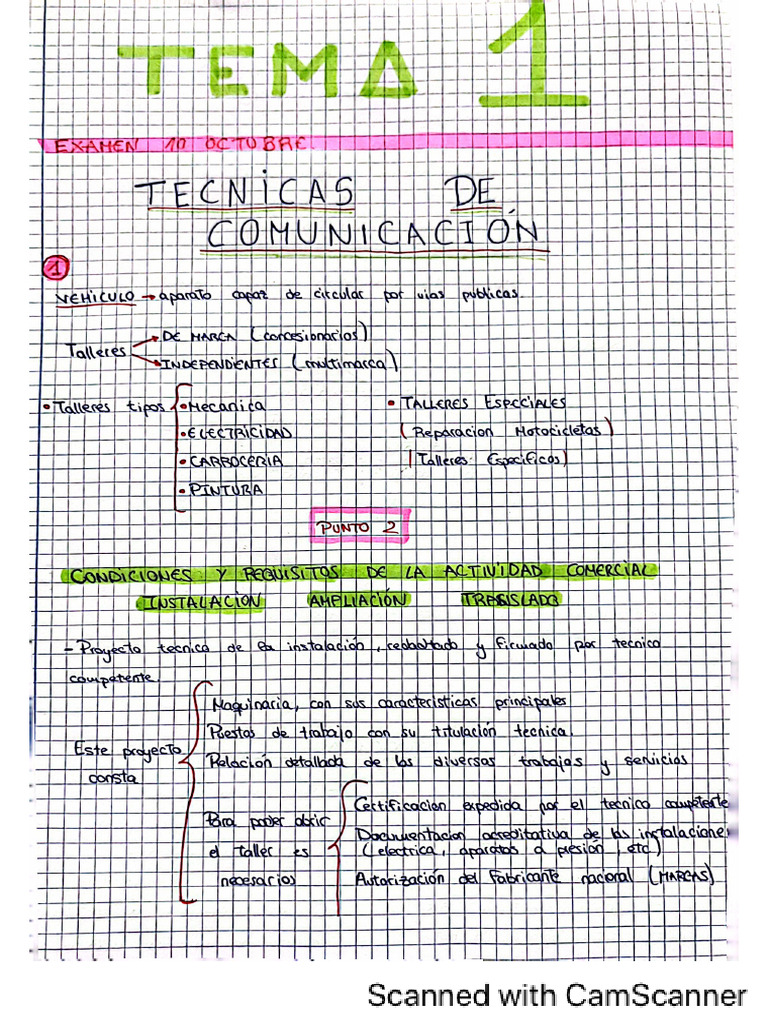 TEMA 1
EXAMEN 10 OCTUBRE.
TECNICAS DE
COMUNICACIÓN
1
VEHICULO → aparato capaz de circular por vias publicas.
Talleres
DE MARCA (concesionarios)
INDEPENDIENTES (multimarca)
• Talleres tipos
• Mecanica
• ELECTRICIDAD
• CARROCERIA
• PINTURA
• TALLERES ESPECIALES
(Reparacion Motocicletas)
(Talleres Especificos)
PUNTO 2
CONDICIONES Y REQUISITOS DE LA ACTIVIDAD COMERCIAL
INSTALACION AMPLIACIÓN TRASLADO
- Proyecto tecnico de la instalación, y firmado por tecnico
competente.
Este proyecto
consta
Maquinaria, con sus caracteristicas principales
Puestos de trabajo con su titulación tecnica.
Relación detallada de los diversos trabajos y servicios
Para poder abrir
el taller es
necesarios
Certificacion expedida por el tecnico competente
Documentacion acreditativa de las instalaciones
(electrica, aparatos a presión, etc)
Autorización del Fabricante nacional (MARCAS)
Scanned with CamScanner